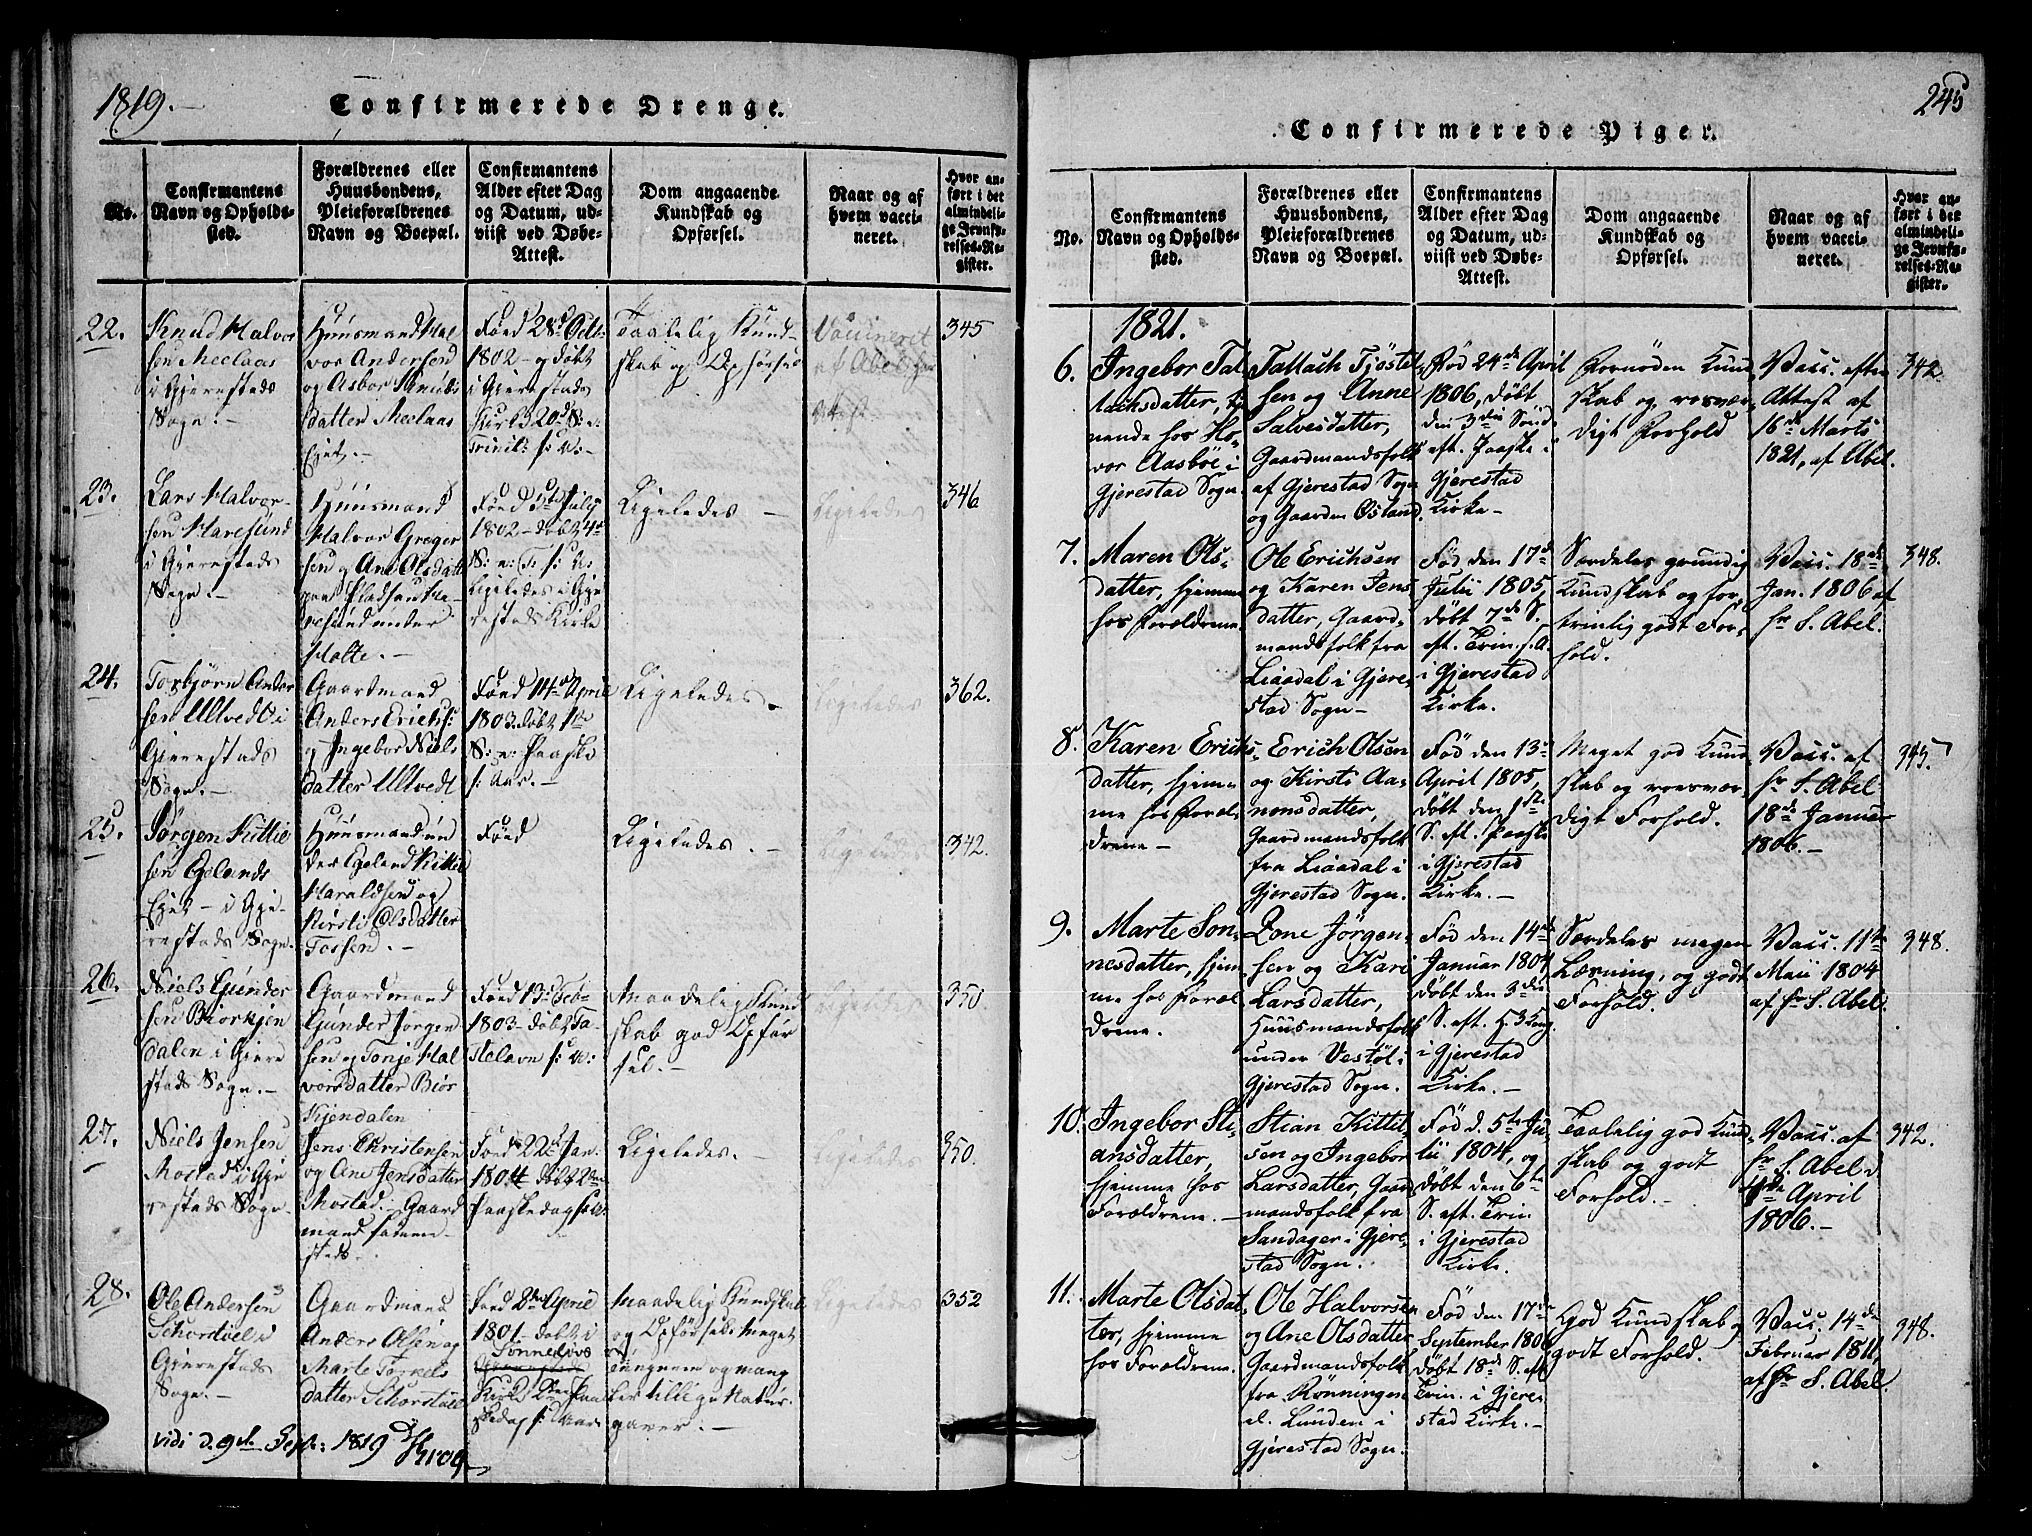 1819.
Confirmerede Drenge.
No.
Confirmantens
Navn og Opholds-
sted.
Forældrenes eller
Huusbondens,
Pleieforældrenes
Navn og Boepæl.
Confirmantens
Alder efter Dag
og Datum, ud-
viist ved Døbe-
Attest.
Dom angaaende
Kundskab og
Opførsel.
Naar og af
hvem vacci-
neret.
Hvor an-
ført i det
almindeli-
ge Jevnfø-
relses-Re-
gister.
22.
Knud Halvor
sen Meclaas
i Gjerestads
Sogn. -
Huusmand Hal
vor Andersen
og Asbor Knuds
datter Meclaas
Ejet. -
Fød 28d Octb:
1802 - og døbt
i Gierestads
Kirke 20d S: e:
Trinit: s: A: -
Taalelig Kund
skab og Opførsel
Vaccineret
af Abel
345
23.
Lars Halvor-
sen Haresund
i Gjerestads
Sogn. -
Huusmand
Halvor Greger
sen og Ane Olsdatt
paa Pladsen Ha-
resund under
Holte. -
Fød 3d July
1802 - døbt 4d
S: e: T: s: A:
Ligeledes i Gje
restads Kirke
Ligeledes -
Ligeledes
346
24.
Torbjørn Ander
sen Ulltvedt i
Gjerestads
Sogn. -
Gaardmand
Anders Erichs:
og Ingebor Niels
datter Ulltvedt
Fød 14de April
1803. døbt 1ste
S: e: Paaske
s: Aar. -
Ligeledes.
Ligeledes
362.
25.
Jørgen Kittel
sen Egelands
Ejet - i Gje-
restads Sogn.
Huusmand un
der Egeland Kittel
Haraldsen og
Kirsti Olsdatter
Tossen. -
Fød
Ligeledes. -
Ligeledes
342.
26.
Niels Gunder
sen Biorkjen
dalen i Gjere
stads Sogn. -
Gaardmand
Gunder Jorgen
sen og Tonje Hal
vorsdatter Biør
kjendalen
Fød 13d Feb-
1803 - døbt Fa-
stelavn s: A:
Maadelig Kund
skab god Opfør
sel. -
Ligeledes
350.
27.
Niels Jensen
Mostad i Gje
restads Sogn -
Jens Christensen
og Ane Jensdatter
Mostad. Gaard
mand samme-
steds.
Fød 22d Jan.
1804 døbt 2den
Paaskedag s: A:
Ligeledes. -
Ligeledes
350.
28.
Ole Andersen
Schorstøel i
Gjerestads
Sogn. -
Gaardmand
Anders Olsen og
Marte Torkels
datter Schorstøel
Fød 2den April
1801 - døbt i
Sønneløvs
Kirke 2den Paa
skedag s: Aar -
Maadelig Kundskab
og Opførsel: Meget
tungnem og mang
ler tillige Natur-
gaver. -
Ligeledes
352
vidi d. 9de Sept: 1819 Krog
245
Confirmerede Piger.
No.
Confirmantens
Navn og Opholds-
sted.
Forældrenes eller
Huusbondens,
Pleieforældrenes
Navn og Boepæl.
Confirmantens
Alder efter Dag
og Datum, ud-
viist ved Døbe-
Attest.
Dom angaaende
Kundskab og
Opførsel.
Naar og af
hvem vacci-
neret.
Hvor an-
ført i det
almindeli-
ge Jevnfø-
relses-Re-
gister.
1821.
6.
Ingebor Tal
lachsdatter, tje
nende hos Ho-
vor Aasbøe i
Gjerestad Sogn.
Tallach Tjöstel
sen og Anne
Salvesdatter,
Gaardmandsfolk
af Gjerestad Sogn
og Gaarden Østland.
Fød 24de April
1806, døbt
den 3die Sönd.
eft. Paaske i
Gjerestad
Kirke -
Fornøden Kund
skab og roesvær-
digt Forhold
Vacc. efter
Attest af
16de Marts
1821, af Abel.
342.
7.
Maren Ols-
datter, hjemme
hos Forældrene.
Ole Erichsen
og Karen Jens
datter, Gaard-
mandsfolk fra
Liaadal i Gjere-
stad Sogn -
Fød den 17de
Julii 1805,
døbt 7de S.
eft. Trin. s. A.
i Gjerestad
Kirke.
Særdeles grundig
Kundskab og for-
trinlig godt For-
hold.
Vacc. 18de
Jan. 1806 af
hr S. Abel.
348.
8.
Karen Erichs-
datter, hjem-
me hos Foræl
drene -
Erich Olsen
og Kirsti Aa-
nonsdatter,
Gaardmandsfolk
fra Liaadal i
Gjerestad Sogn.
Fød den 13de
April 1805,
døbt den 1ste
S. eft. Paaske
i Gjerestad
Kirke. -
Meget god Kund
skab og roesvær-
digt Forhold.
Vacc. af
hr S. Abel
18de Januar
1806. -
345.
9.
Marte Son-
nesdatter, hjem
me hos Foræl
drene.
Zone Jörgen-
sen og Kari
Larsdatter,
Huusmandsfolk
under Vestöl i
Gjerestad Sogn.
Fød den 14de
Januar 1804,
døbt den 3die
S. eft. H. 3 Kong.
i Gjerestad
Kirke. -
Særdeles megen
Lærning, og godt
Forhold.
Vacc. 11te
Maii 1804
af hr S. Abel.
348.
10.
Ingebor Sti-
ansdatter,
hjemme hos
Forældrene. -
Stian Kittel-
sen og Ingebor
Larsdatter, Gaard
mandsfolk fra
Sandager i Gjere-
stad Sogn.
Fød d. 5te Ju-
lii 1804, og
døbt den 6te
S. eft. Trin.
i Gjerestad
Kirke.
Taalelig god Kund
skab og godt
Forhold. -
Vacc. af
hr S. Abel d.
April
1806. -
342.
11.
Marte Olsdat-
ter, hjemme
hos Forældrene.
Ole Halvorsen
og Ane Olsdatter
Gaardmandsfolk
fra Rönningen
el. Lunden i
Gjerestad Sogn.
Fød den 17de
September 1806
døbt 18de S. eft.
Trin. i Gjere-
stad Kirke. -
God Kundskab og
godt Forhold.
Vacc. 14de
Februar 1811,
af hr S. Abel.
348.